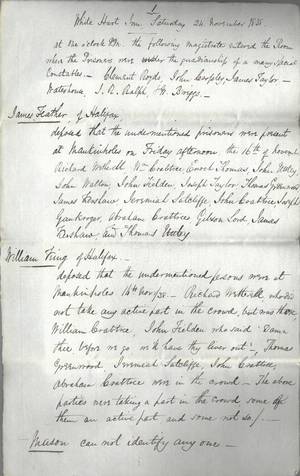 1
White Hart Inn Saturday 24 November 1838
at one o'clock PM. the following magistrates entered the Room
when the Prisoners were under the guardianship of a many special
Constables – Clement Royds, John Crossley, James Taylor –
Waterhouse, J. R. Ralph, H. Briggs –
James Feather of Halifax
deposed that the undermentioned prisoners were present
at Mankinholes on Friday afternoon the 16th of November
Richard Wetherill Wm Crabtree Enoch Thomas, John Uttley,
John Walton, John Fielden, Joseph Taylor Thomas Greenwood
James Renshaw Jeremiah Sutcliffe, John Crabtree Joseph
Gaukroger, Abraham Crabtree Gibson Lord James
Renshaw and Thomas Uttley
William King of Halifax –
deposed that the undermentioned persons were at
Mankinholes 16th Nov/38 – Richard Wetherill who did
not take any active part in the crowd, but was there,
William Crabtree John Fielden who said 'Damn
thee before we go we'll have thy liver out', Thomas
Greenwood Jeremiah Sutcliffe, John Crabtree,
Abraham Crabtree were in the crowd – The above
parties were taking a part in the crowd some of
them an active part and some not so/. –
Mason can not identify any one –